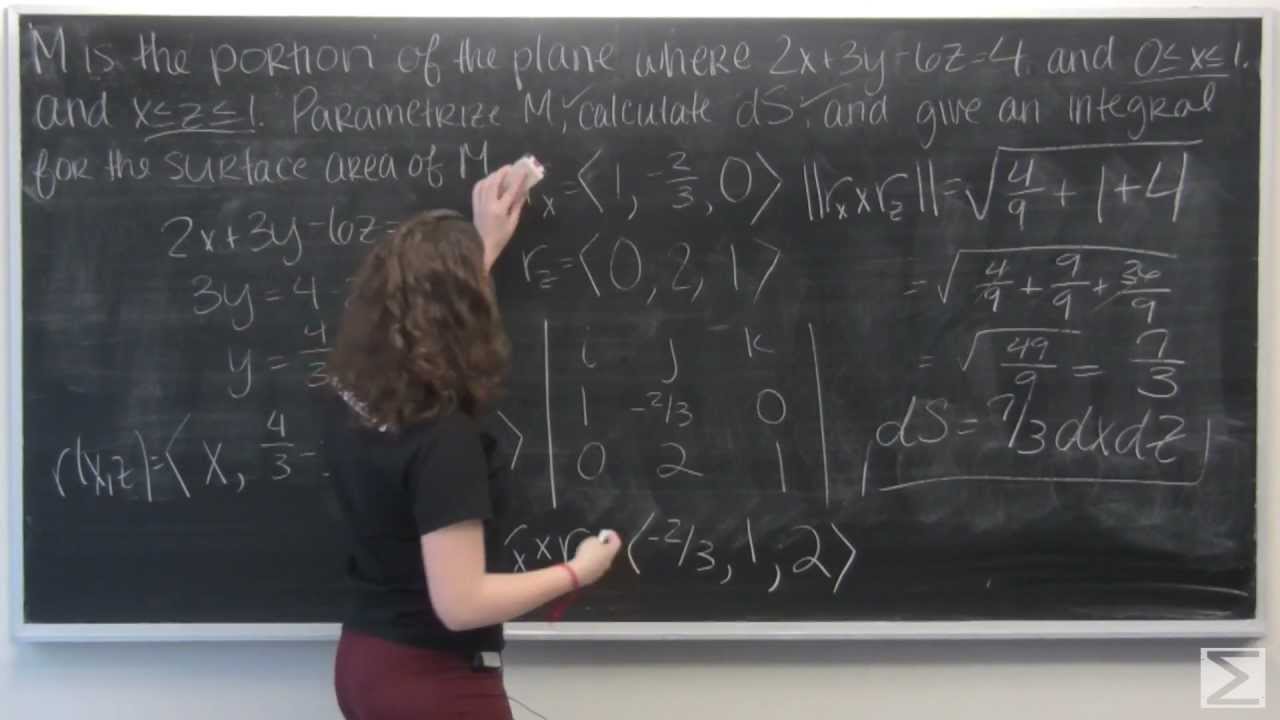 M is the portion of the plane where 2x+3y-6z=4 and 0≤x≤1.
and x≤z≤1. Parametrize M,✓ calculate dS,✓ and give an integral
for the surface area of M
2x+3y-6z=
3y=4-
y=4/3
r(x,z)=⟨x, 4/3-
⟩
r_x=⟨1, -2/3, 0⟩
r_z=⟨0, 2, 1⟩
| i j k |
| 1 -2/3 0 |
| 0 2 1 |
r_x×r ⟨-2/3, 1, 2⟩
||r_x×r_z||=√(4/9+1+4)
=√(4/9+9/9+36/9)
=√(49/9)=7/3
dS=7/3dxdz
Σ